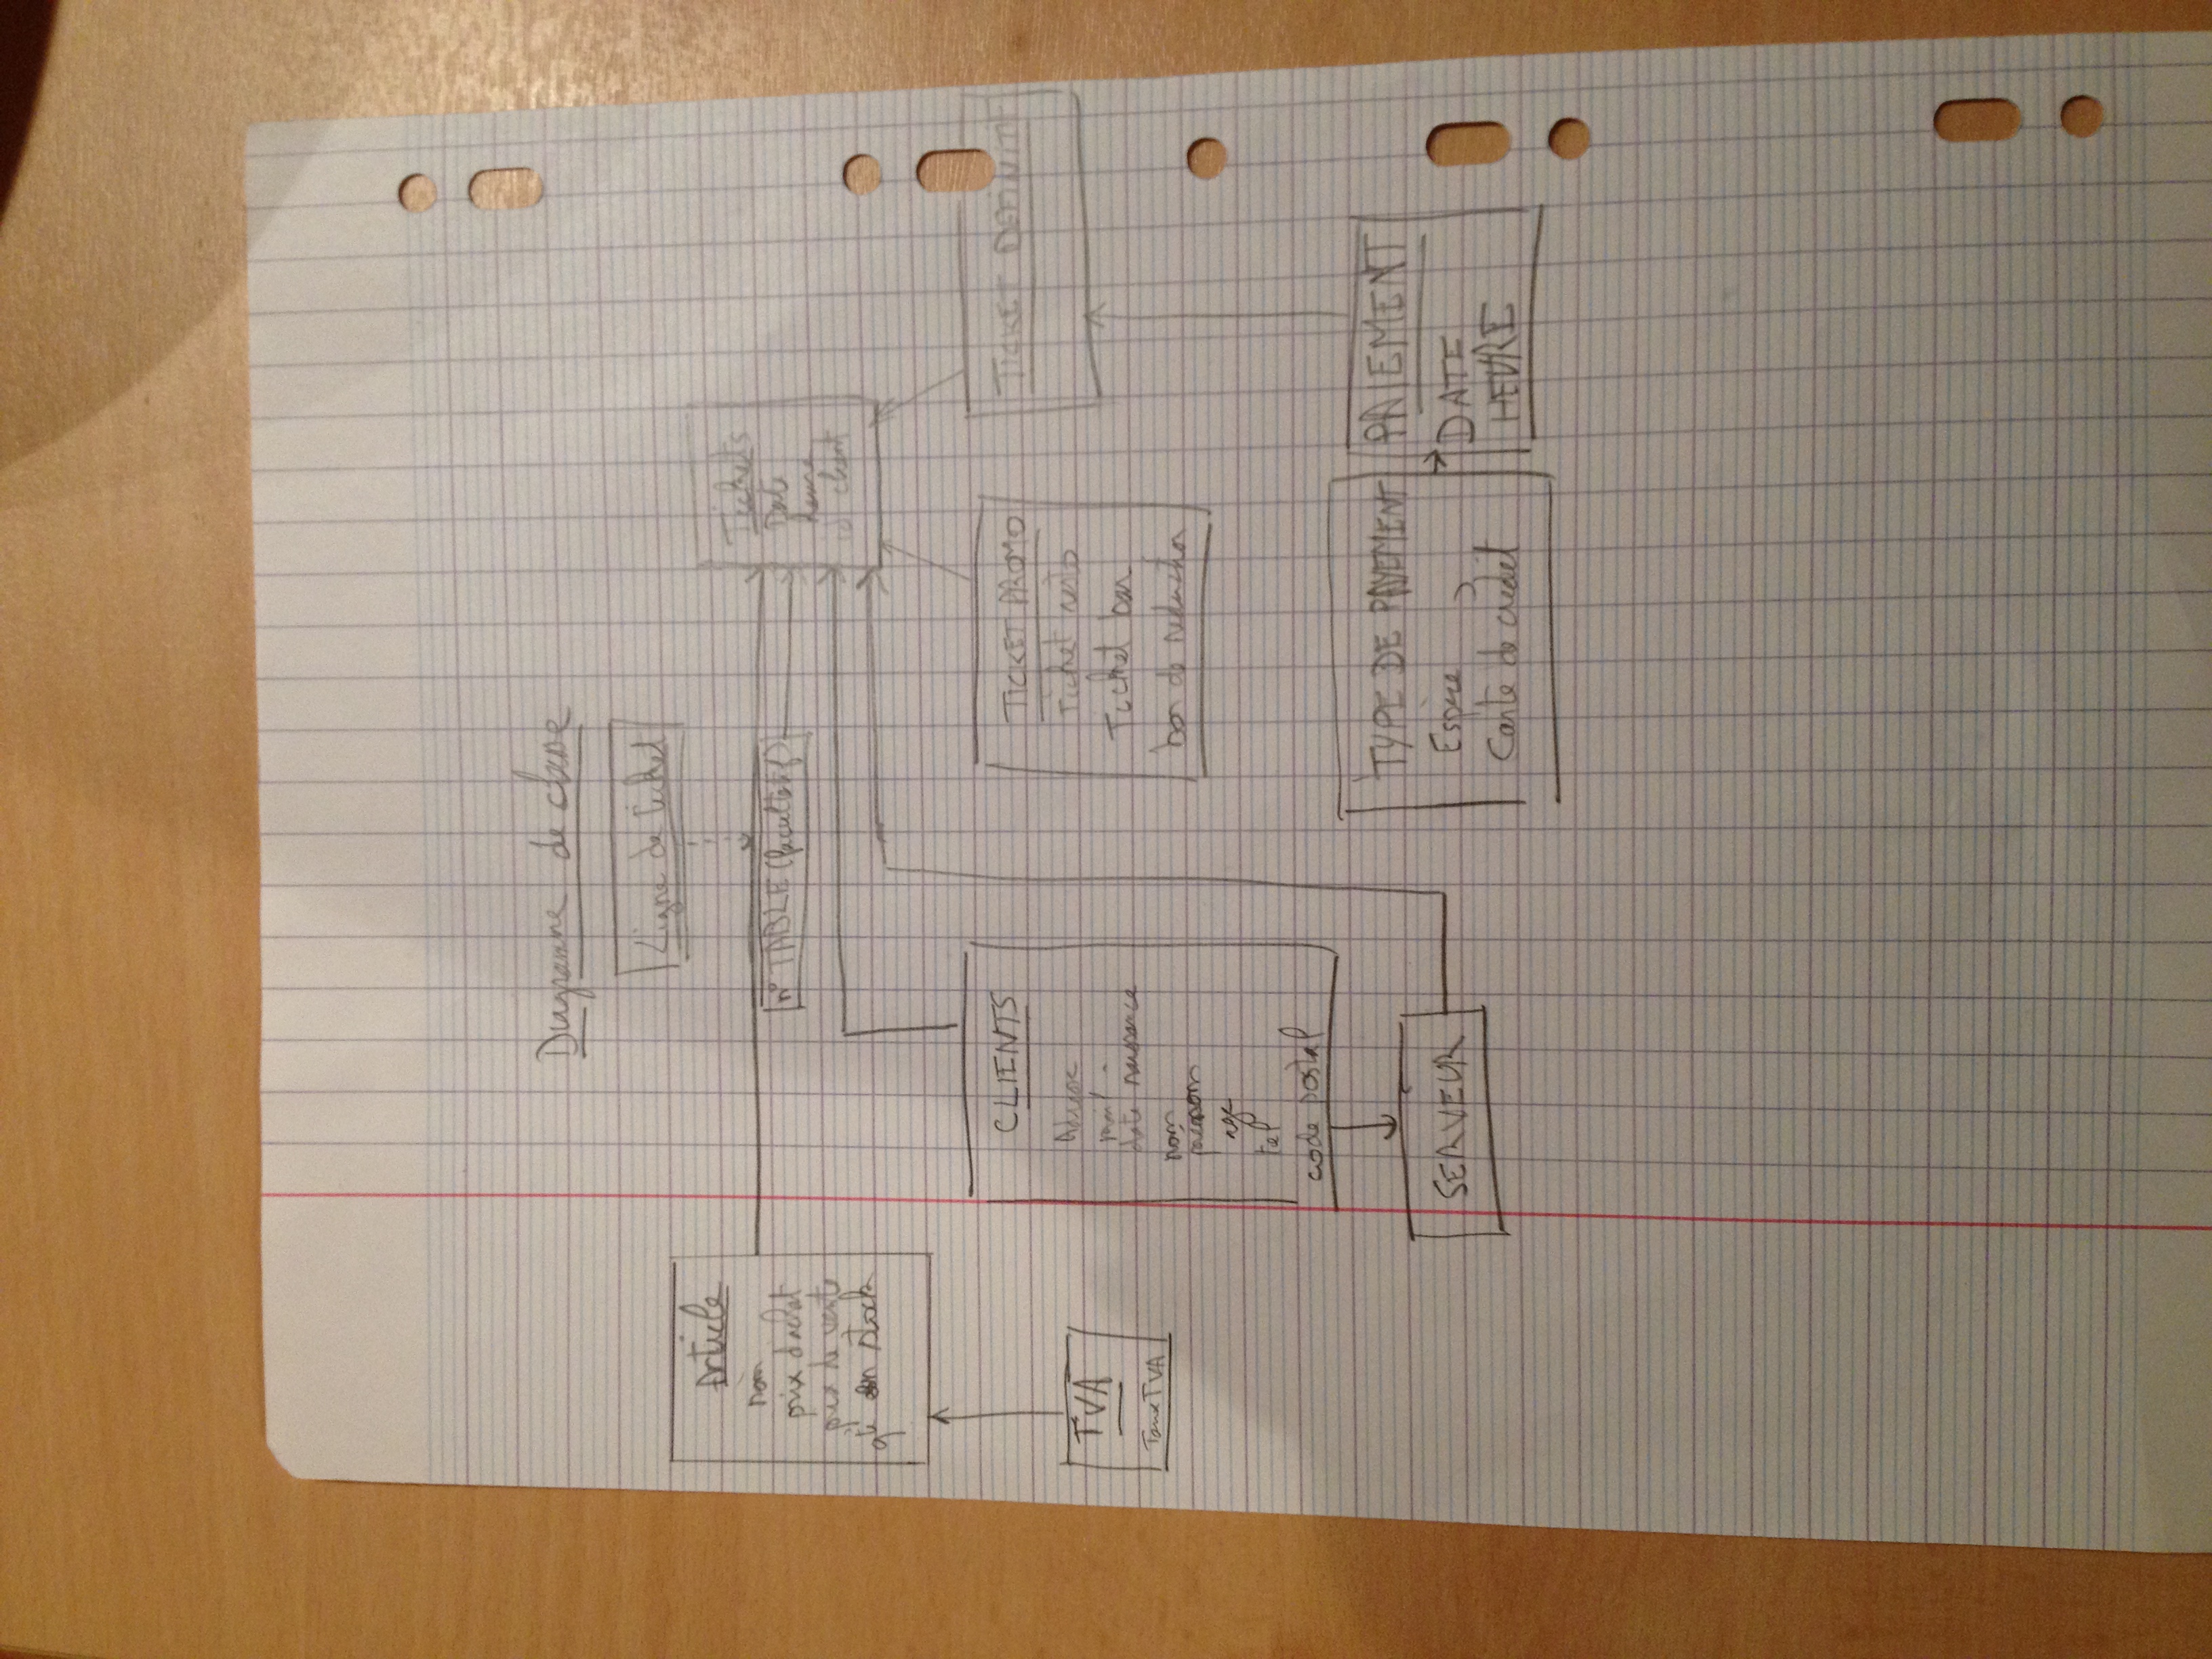 Diagramme de classe
Ligne de ticket
Article
nom
prix d'achat
prix de vente
qté en stock
n° TABLE (facultatif)
Tickets
Date
heure
id client
TVA
Taux TVA
CLIENTS
Adresse
mail
date naissance
nom
prénom
age
tel
code postal
TICKET PROMO
Ticket resto
Ticket bar
bon de reduction
TICKET DEFINITIF
SERVEUR
TYPE DE PAYEMENT
Espèce
Carte de credit
PAIEMENT
DATE
HEURE